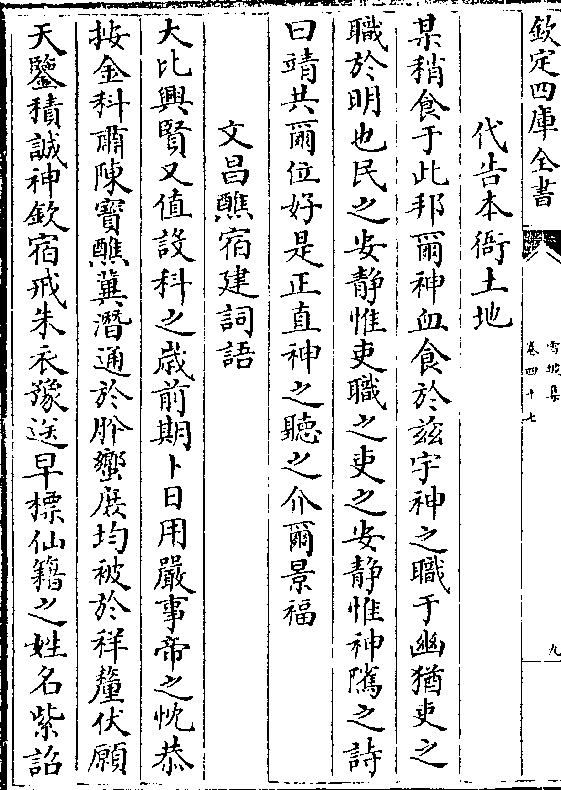 欽定四庫全書
雪坡集
卷四十七
九
代告本衙土地
某稍食于此邦爾神血食於兹宇神之職于幽猶吏之
職於明也民之安靜惟吏職之吏之安靜惟神隲之詩
曰靖共爾位好是正直神之聽之介爾景福
文昌醮宿建詞語
大比興賢又值設科之歲前期卜日用嚴事帝之忱恭
按金科肅陳寳醮冀潛通於肸蠁庶均被於祥釐伏願
天鑒積誠神歆宿戒朱衣豫送早標仙籍之姓名紫詔